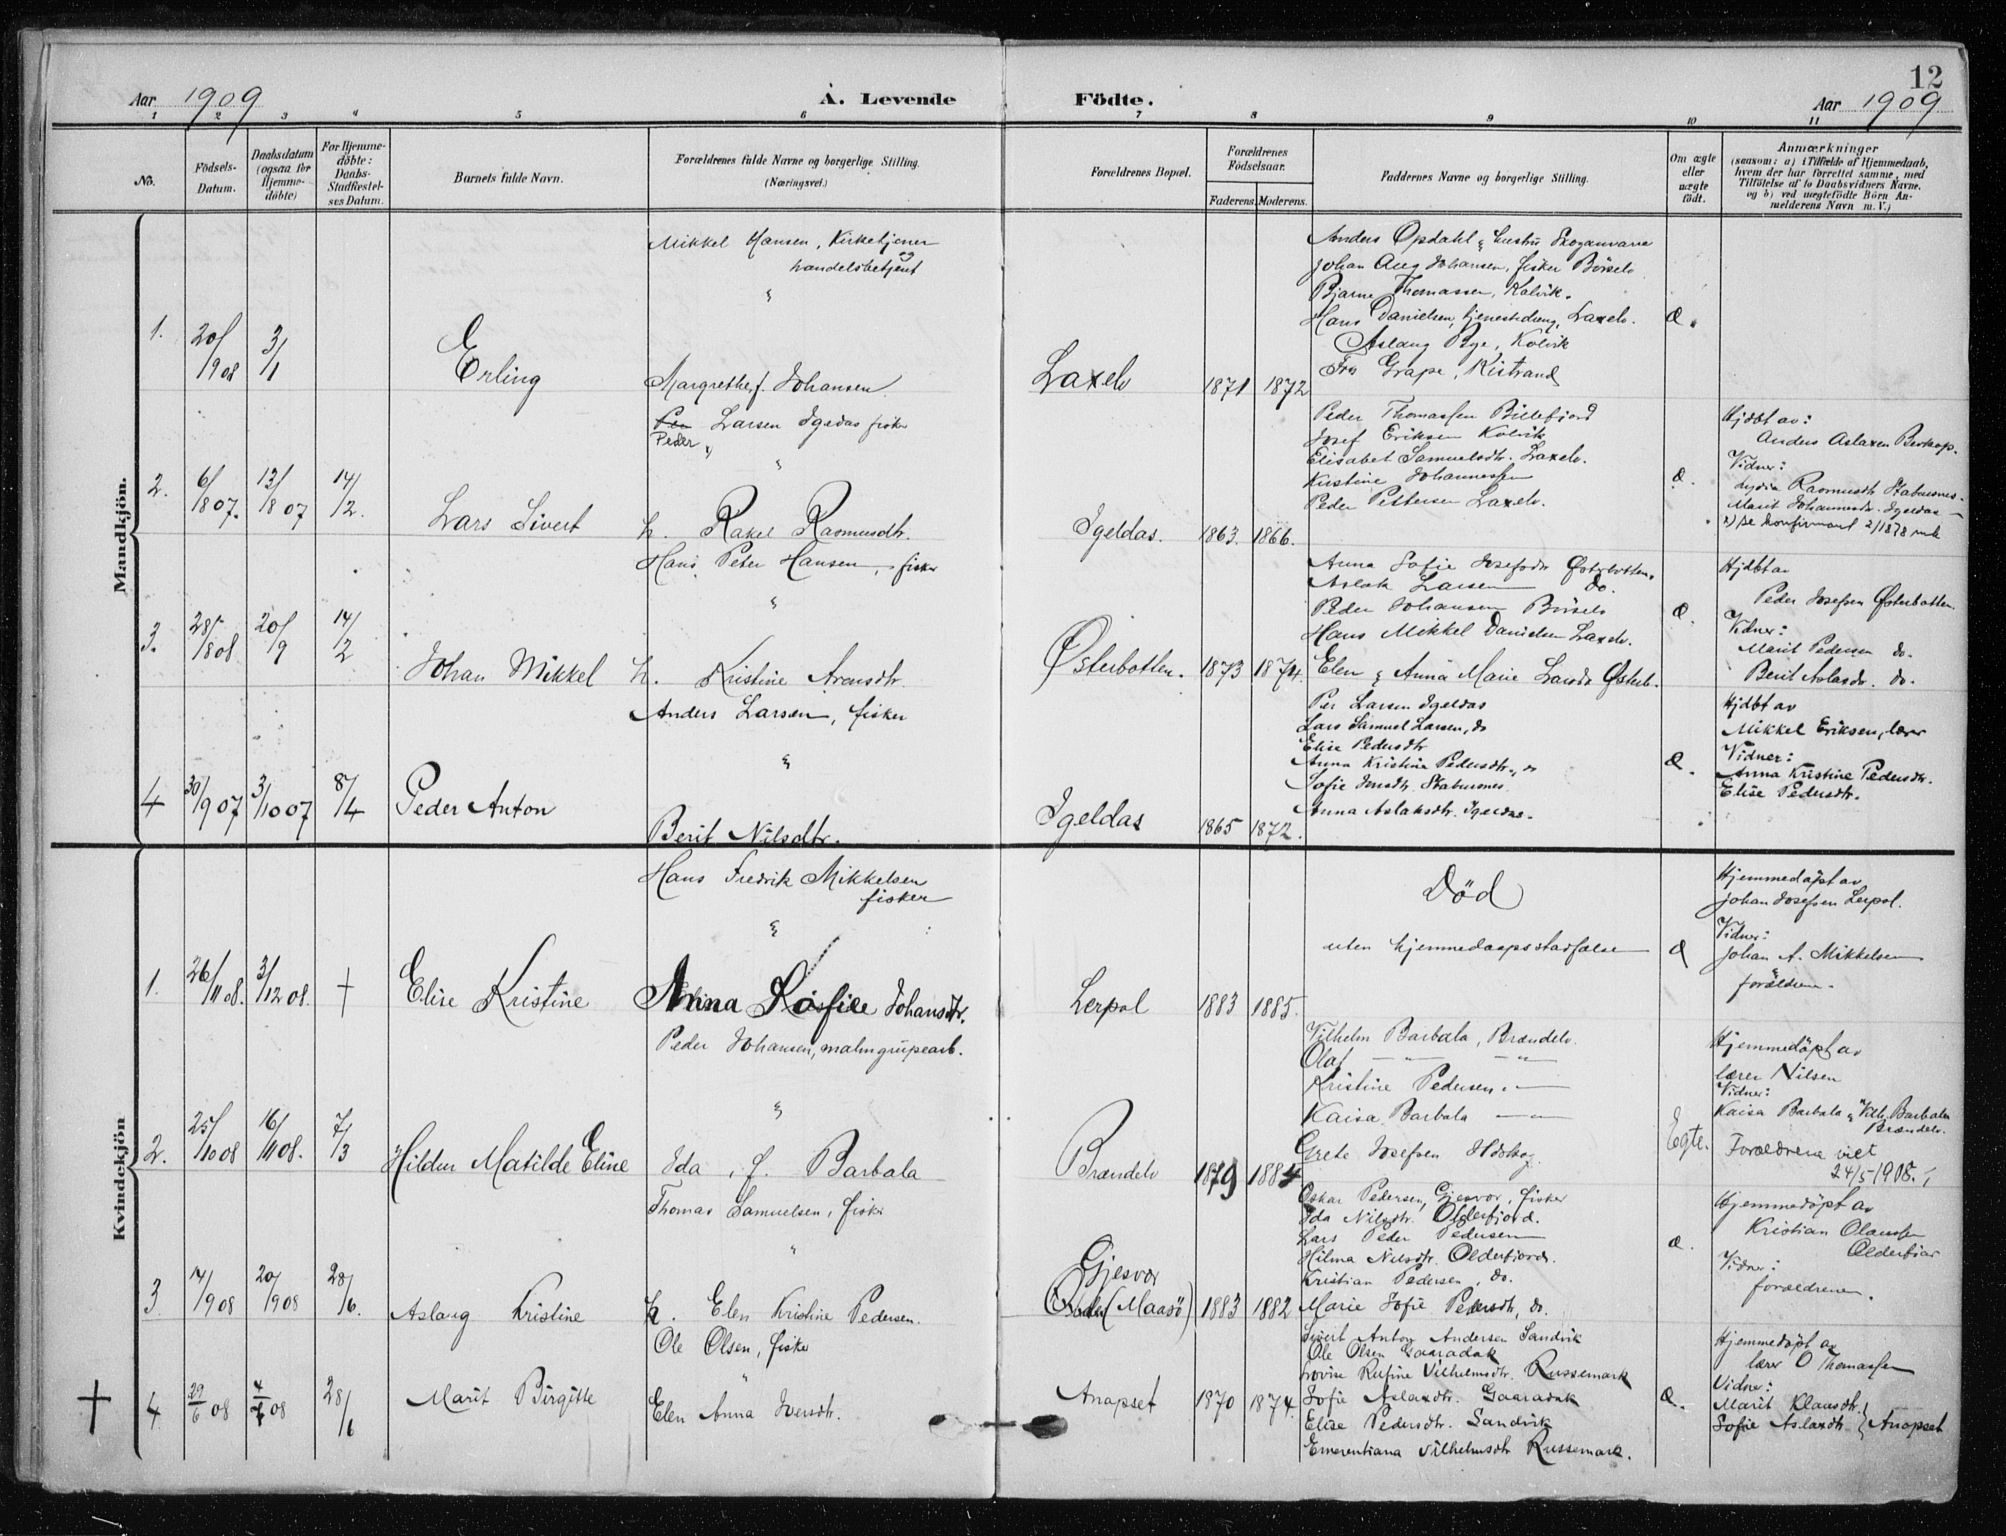 12
Aar 1909
A. Levende
Födte.
Aar 1909
1 2 3 4 5 6 7 8 9 10 11
No.
Födsels-
Datum.
Daabsdatum
(ogsaa for
Hjemme-
döbte)
For Hjemme-
döbte:
Daabs-
Stadfæstel-
ses Datum.
Barnets fulde Navn.
Forældrenes fulde Navne og borgerlige Stilling.
(Næringsvei.)
Forældrenes Bopæl.
Forældrenes
Födselsaar.
Faderens. Moderens.
Faddernes Navne og borgerlige Stilling.
Om ægte
eller
uægte
födt.
Anmærkninger
(saasom: a) i Tilfælde af Hjemmedaab,
hvem der har forrettet samme, med
Tilföielse af to Daabsvidners Navne.
og b) ved uægtefödte Börn An-
melderens Navn m. V.)
Mandkjön.
1.
20/1908
3/1
Erling
Mikkel Hansen, Kirketjener
og
handelsbetjent
"
Margrethe f. Johansen
Laxelv
1871 1872
Anders Opdahl & hustru Skoganvarre
Johan Aug Johansen, fisker Börselv
Bjarne Thomassen, Kolvik.
Hans Danielsen, tjenestedreng, Laxelv.
Aslaug Bye, Kolvik
Fru Grape, Kistrand
Æ.
2.
6/1807.
13/1807
14/12.
Lars Sivert
Larsen Igeldas fisker
Peder
"
h. Rakel Rasmusdtr.
Igeldas.
1863. 1866.
Peder Thomassen Billefjord
Josef Eriksen Kolvik
Elisabet Samuelsdtr. Laxelv.
Kristine Johannessen
Peder Pettersen Laxelv.
Æ.
Hjdbt av:
Anders Aslaxen
Vidner:
Lydia Rasmusdtr Stabursnes
Marit Johannesdr. Igeldas
x) se konfirmant 2/1878
3.
28/1808
20/9
14/2
Johan Mikkel
Hans Peter Hansen, fisker
"
h. Kristine Arensdtr.
Østerbotten.
1873 1874.
Anna Sofie Josefsdr Østerbotten.
Aslak Larsen do.
Peder Johansen Börselv
Hans Mikkel Danielsen Laxelv.
Elen & Anna Marie Larsdr Østerb.
Æ.
Hjdbt av
Peder Josefsen Østerbotten.
Vidner:
Marit Pedersen do.
Berit Aslaxdr. do.
4
30/907
3/1007
8/4
Peder Anton
Anders Larsen, fisker
"
Berit Nilsdtr.
Igeldas
1865 1872.
Per Larsen Igeldas
Lars Samuel Larsen, do
Elise Pedersdtr
Anna Kristine Pedersdtr. "
Sofie Jensdtr. Stabursnes
Anna Aslaksdtr. Igeldas.
Æ.
Hjdbt av
Mikkel Eriksen, lærer
Vidner:
Anna Kristine Pedersdtr.
Elise Pedersdtr.
Kvindekjön
1.
26/1108.
3/1208.
+
Elise Kristine
Hans Fredrik Mikkelsen
fisker
"
Anna Johansdtr.
Lerpol
1883 1885.
Död
uten hjemmedaapsstadfæstelse
Æ
Hjemmedöpt av
Johan Josefsen Lerpol.
Vidner:
Johan A. Mikkelsen
&
forældrene.
2.
25/1008
16/1108.
7/3
Hildur Matilde Eline
Peder Johansen, malmgrupearb.
"
Ida, f. Barbala
Brændelv
1879 1884
Vilhelm Barbala, Brændelv.
Olaf — " — — " —
Kristine Pedersen. —
Kaisa Barbala — —
Grete Josefsen
Egte.
Hjemmedöpt av
lærer Nilsen
Vidner:
Kaisa Barbala & Vilh. Barbala
Brændelv.
Forældrene viet
24/5 1908.
3.
14/908
20/908
28/6.
Aslaug Kristine
Thomas Samuelsen, fisker
"
h. Elen Kristine Pedersen.
Gjesvær
(Maasö)
1883 1882
Oskar Pedersen, Gjesvær, fisker
Ida Nilsdtr. Olderfjord.
Lars Peder Pedersen
Hilma Nilsdtr. Olderfjord.
Kristian Pedersen, do.
Marie Sofie Pedersdtr, do.
Æ.
Hjemmedöpt av
Kristian Olaussen
Olderfjor
Vidner:
forældrene.
+
4
29/6 08
08
28/6
Marit Birgitte
Ole Olsen, fisker
"
Elen Anna Iversdtr.
Anapset
1870 1874.
Sivert Anton Andersen Sandvik
Ole Olsen Gaaradak
Lovise Rufine Vilhelmsdtr. Russemark
Sofie Aslaxdtr. Gaaradak
Elise Pedersdtr. Sandvik
Emerentiana Vilhelmsdtr Russemark.
Æ.
Hjemmedöpt av
lærer O Thomassen
Vidner:
Marit Klausdtr.
Sofie Aslaxdtr } Anapset